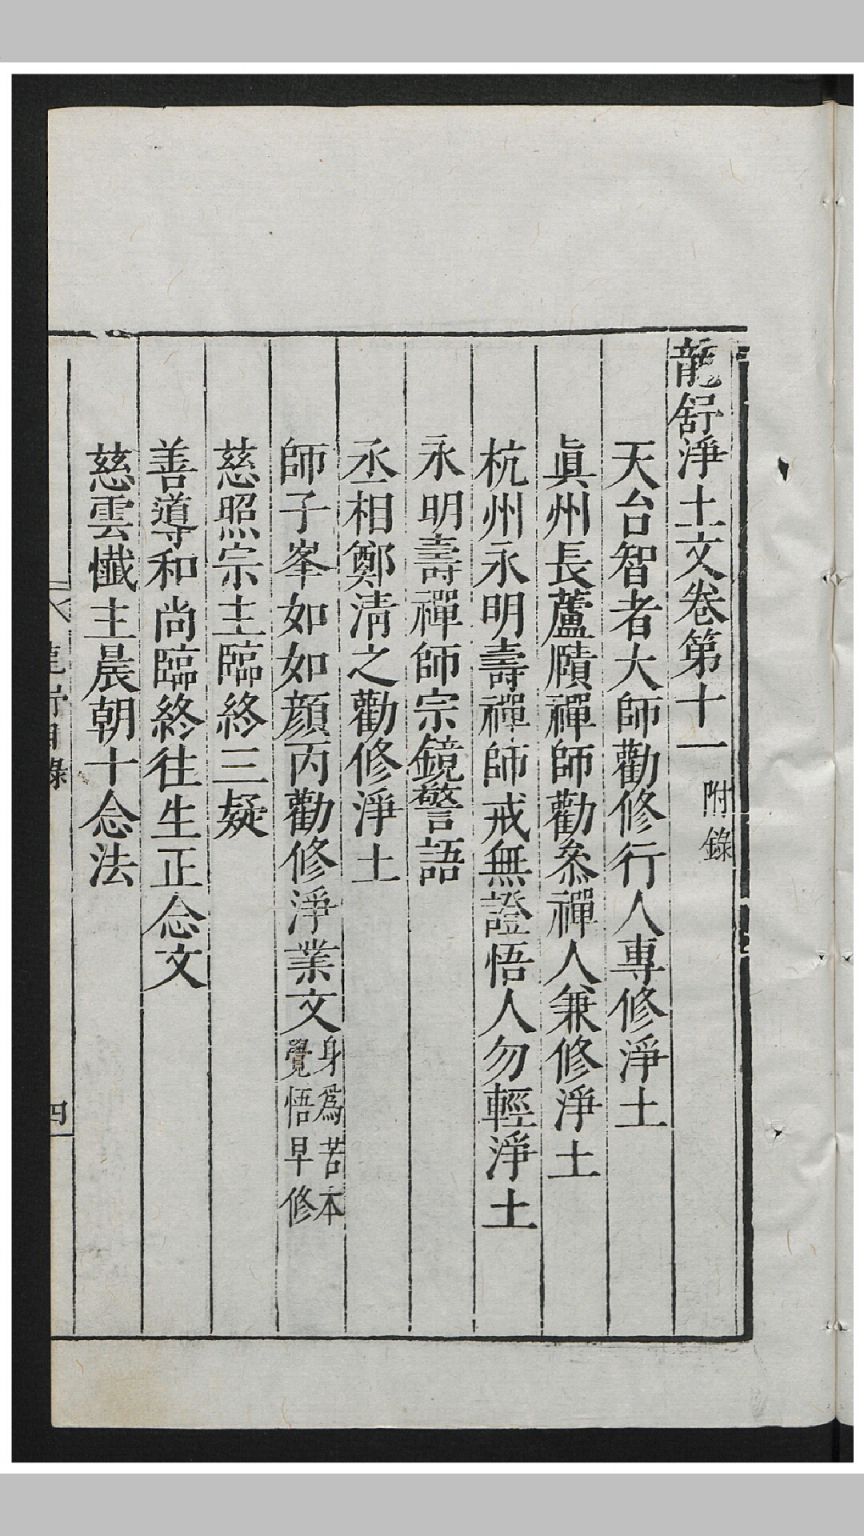 龍舒淨土文卷第十一 附錄
天台智者大師勸修行人專修淨土
眞州長蘆賾禪師勸叅禪人兼修淨土
杭州永明壽禪師戒無證悟人勿輕淨土
永明壽禪師宗鏡警語
丞相鄭淸之勸修淨土
師子峯如如顔丙勸修淨業文 身爲苦本 覺悟早修
慈照宗主臨終三疑
善導和尚臨終往生正念文
慈雲懺主晨朝十念法
龍舒目錄 四